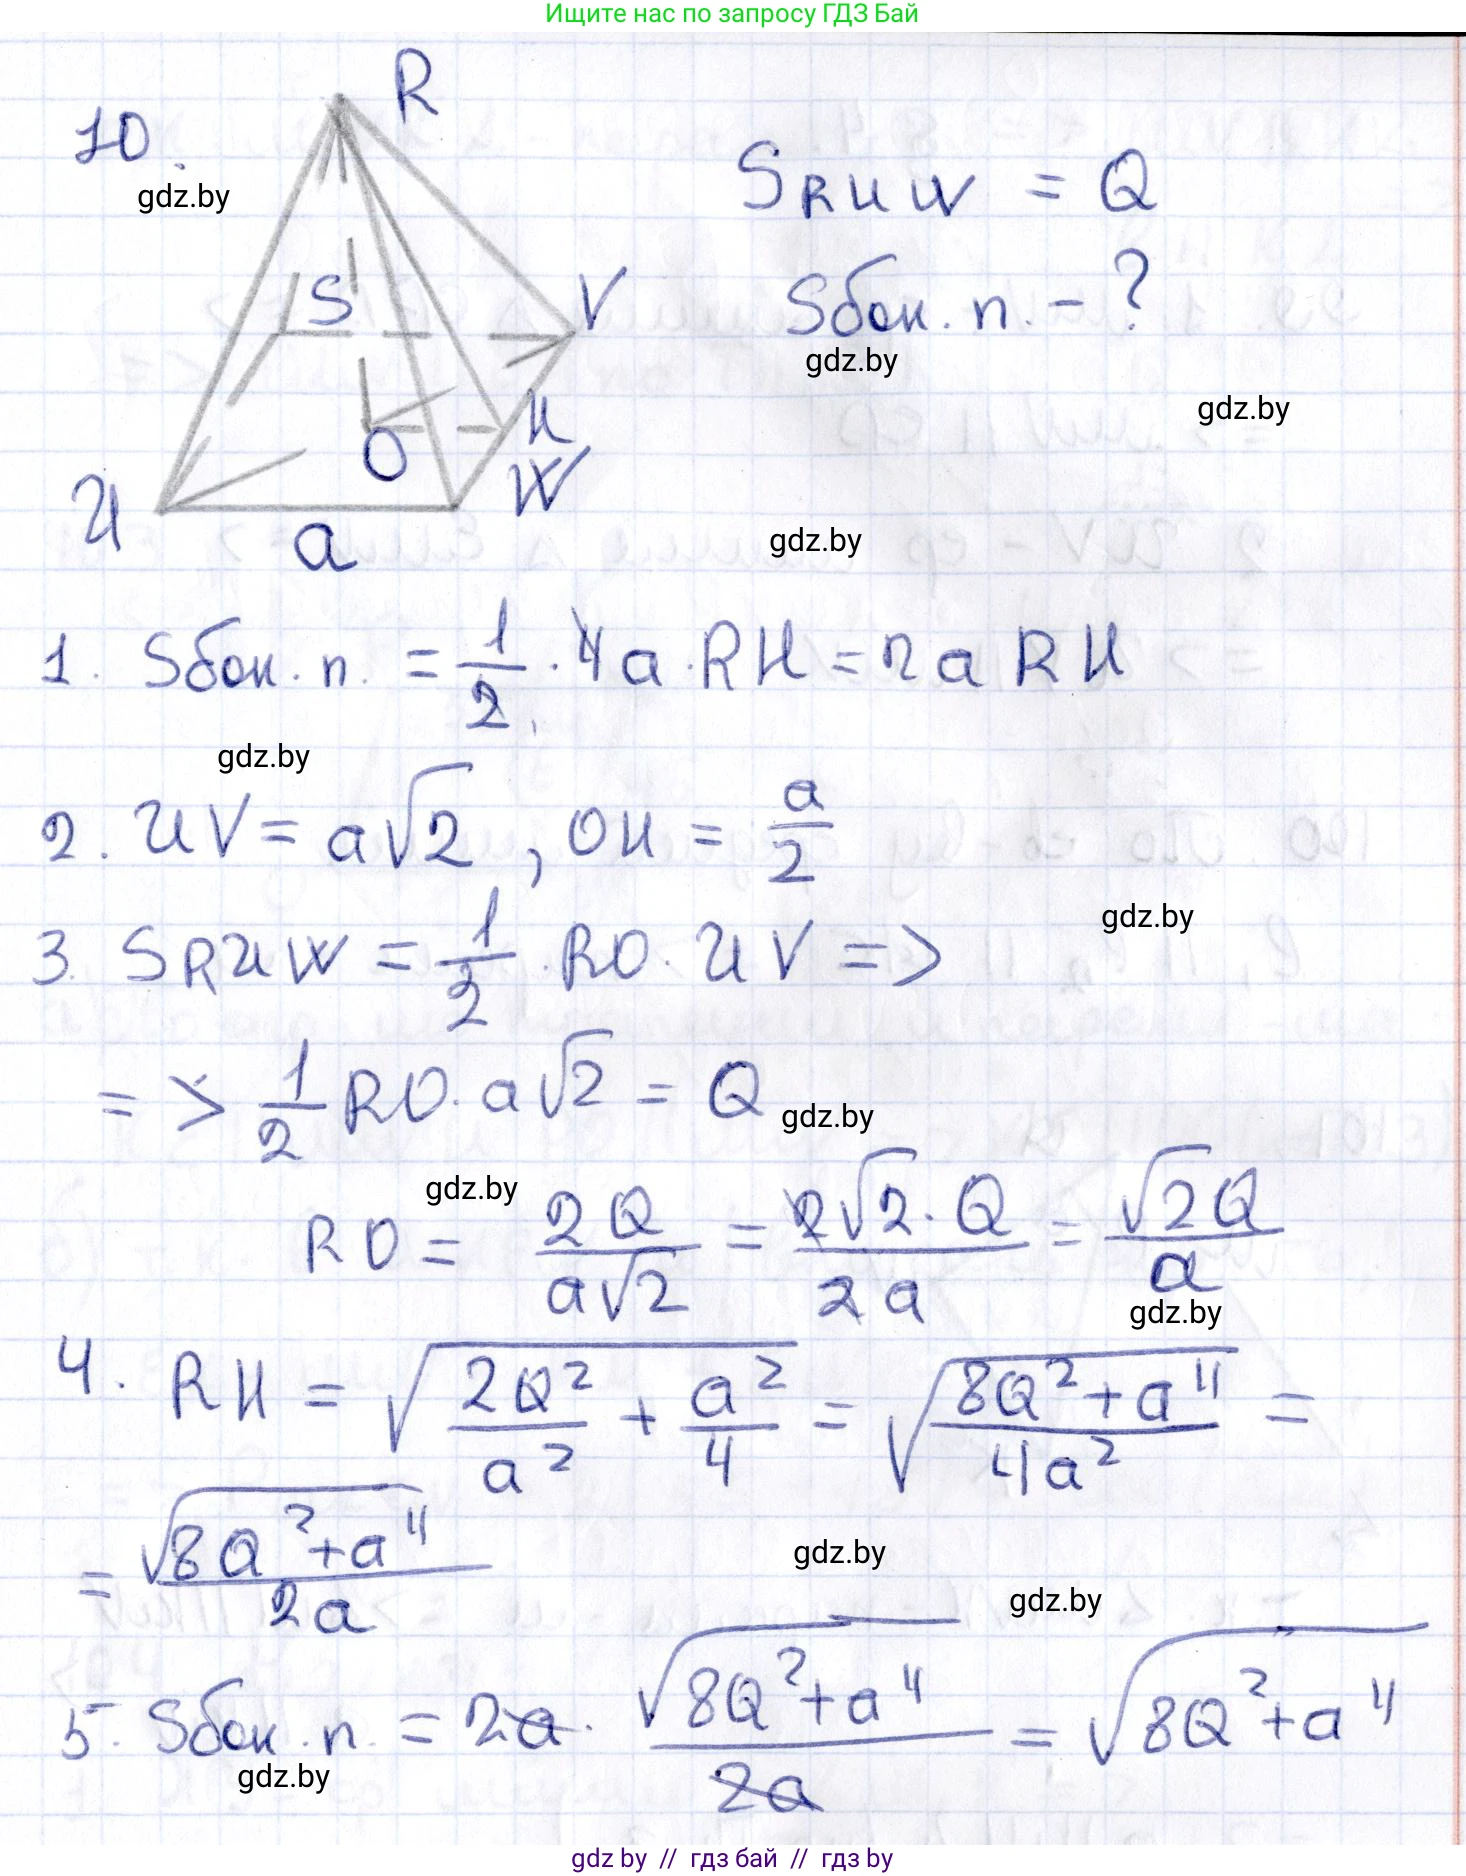 Ищите нас по запросу ГДЗ Бай
10.
R
gdz.by
S RUW = Q
S
V
Sбок. п. - ?
gdz.by
gdz.by
H
O
U
W
a
gdz.by
1. Sбок. п. = 1/2 · 4a · RH = 2a RH
gdz.by
2. UV = a√2 , OH = a/2
gdz.by
3. S RUW = 1/2 · RO · UV =>
=> 1/2 RO · a√2 = Q
gdz.by
gdz.by
RO = 2Q/a√2 = 2√2 · Q/2a = √2Q/a
gdz.by
4. RH = √(2Q²/a² + a²/4) = √(8Q² + a⁴/4a²) =
= √(8Q² + a⁴)/2a
gdz.by
gdz.by
5. Sбок. п. = 2a · √(8Q² + a⁴)/2a = √(8Q² + a⁴)
gdz.by
gdz by // гдз бай // гдз by